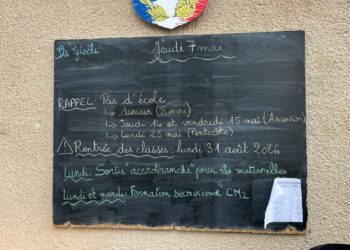 Jeudi 7 mai
RAPPEL: Pas d'école
↳ demain (8 mai)
↳ Jeudi 14 et vendredi 15 mai (Ascension)
↳ Lundi 25 mai (Pentecôte)
⚠ Rentrée des classes: lundi 31 août 2026
Lundi: Sortie "accrobranche" pour les maternelles
Lundi et mardi: Formation secourisme CM2